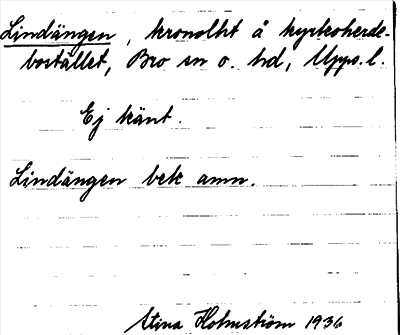 Lindängen, kronolht å kyrkoherde-
bostället, Bro sn o. hd, Upps. l.
Ej känt.
Lindängen bek amn.
Stina Holmström 1936